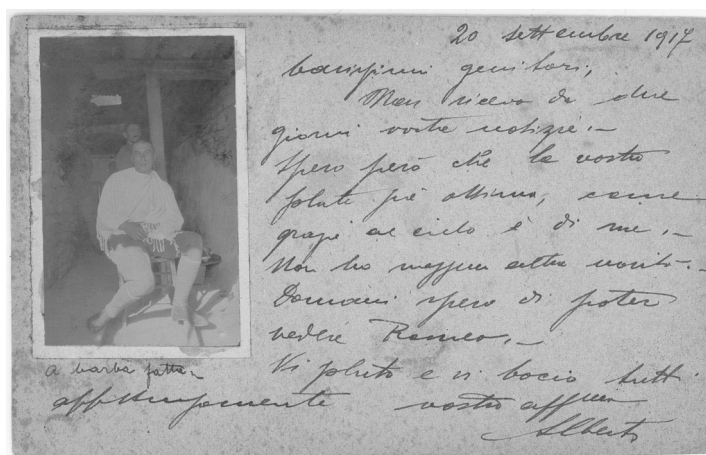 20 settembre 1917
Carissimi genitori,
Non ricevo da due
giorni vostre notizie. —
Spero però che la vostra
salute sia ottima, come
grazie al cielo è di me. —
Non ho nessun altra novità. —
Domani spero di poter
vedere Romeo. —
Vi saluto e vi bacio tutti
affettuosamente vostro aff.mo
Alberto
a barba fatta —